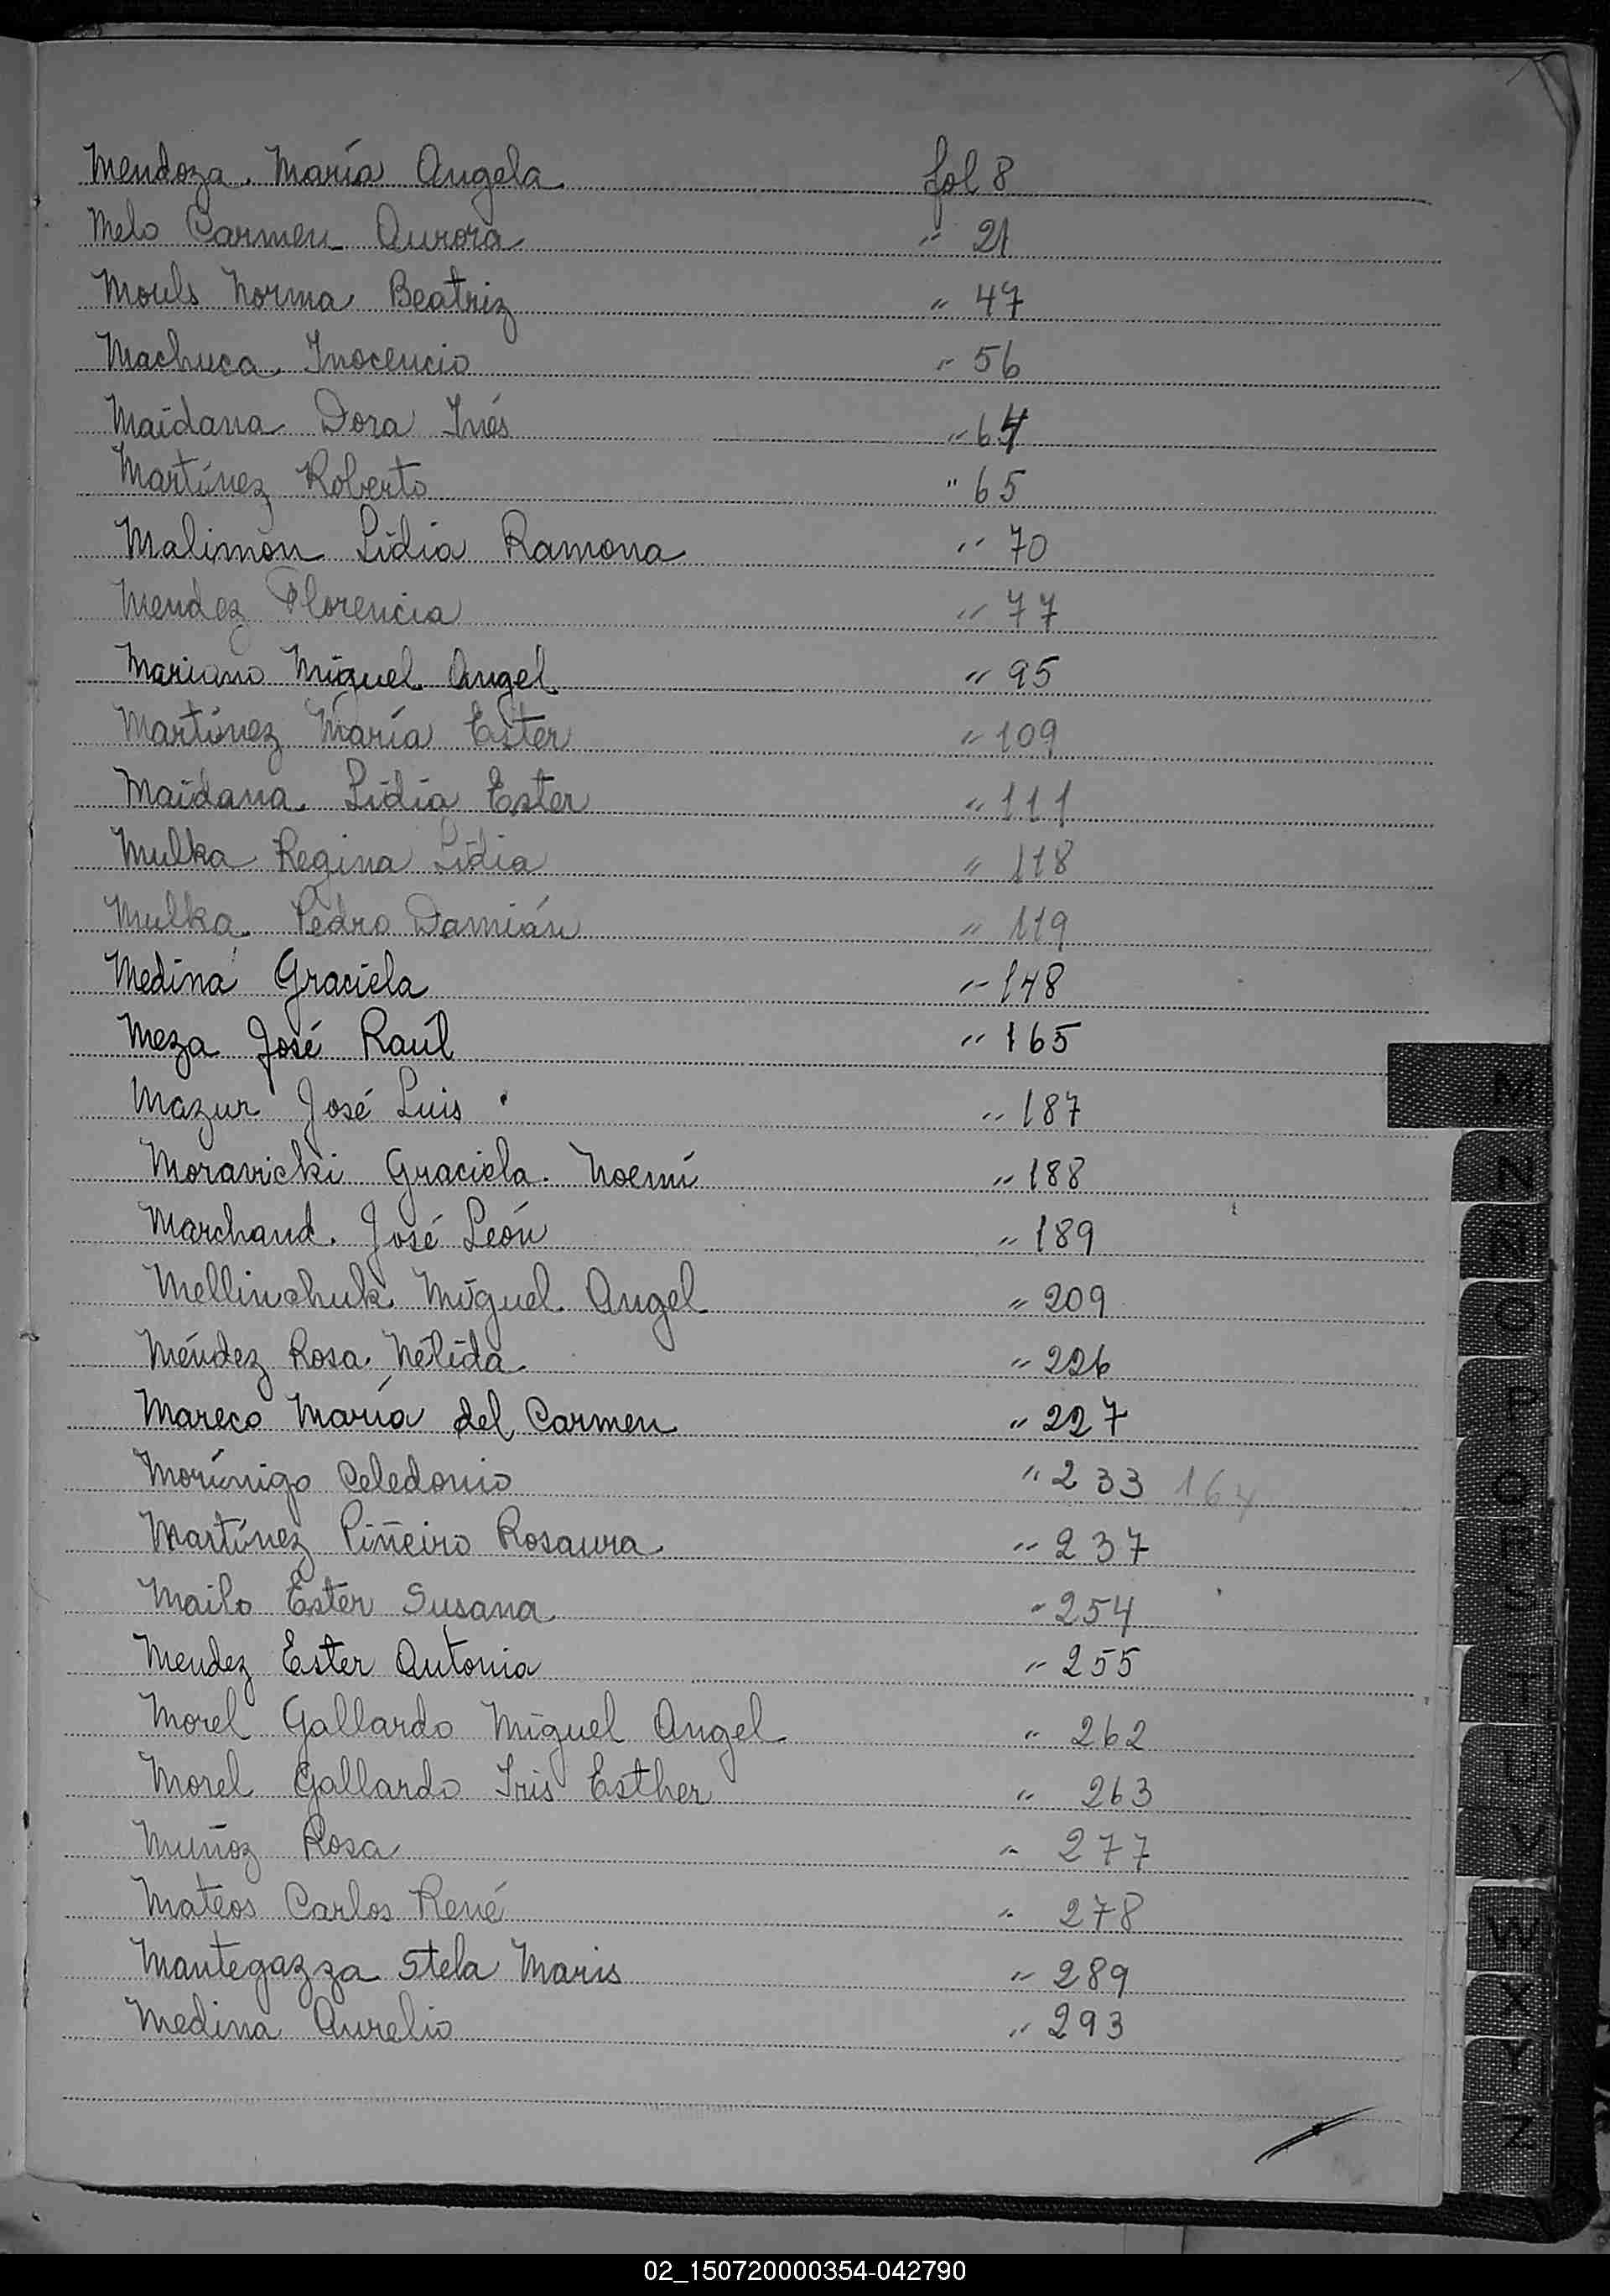 Mendoza María Angela fol 8
Melo Carmen Aurora " 21
Mouls Norma Beatriz " 47
Machuca Inocencio " 56
Maidana Dora Inés " 64
Martínez Roberto " 65
Malimon Lidia Ramona " 70
Mendez Florencia " 77
Mariano Miguel Angel " 95
Martínez María Ester " 109
Maidana Lidia Ester " 111
Mulka Regina Lidia " 118
Mulka Pedro Damián " 119
Medina Graciela " 148
Meza José Raúl " 165
Mazur José Luis " 187
Moravicki Graciela Noemí " 188
Marchand José León " 189
Mellinchuk Miguel Angel " 209
Méndez Rosa Nélida " 226
Mareco María del Carmen " 227
Morínigo Celedonio " 233 164
Martínez Piñeiro Rosaura " 237
Mailo Ester Susana " 254
Mendez Ester Antonia " 255
Morel Gallardo Miguel Angel " 262
Morel Gallardo Iris Esther " 263
Muñoz Rosa " 277
Mateos Carlos René " 278
Mantegazza Stela Maris " 289
Medina Aurelio " 293
M
N
Ñ
O
P
Q
R
S
T
U
V
W
X
Y
Z
02_150720000354-042790